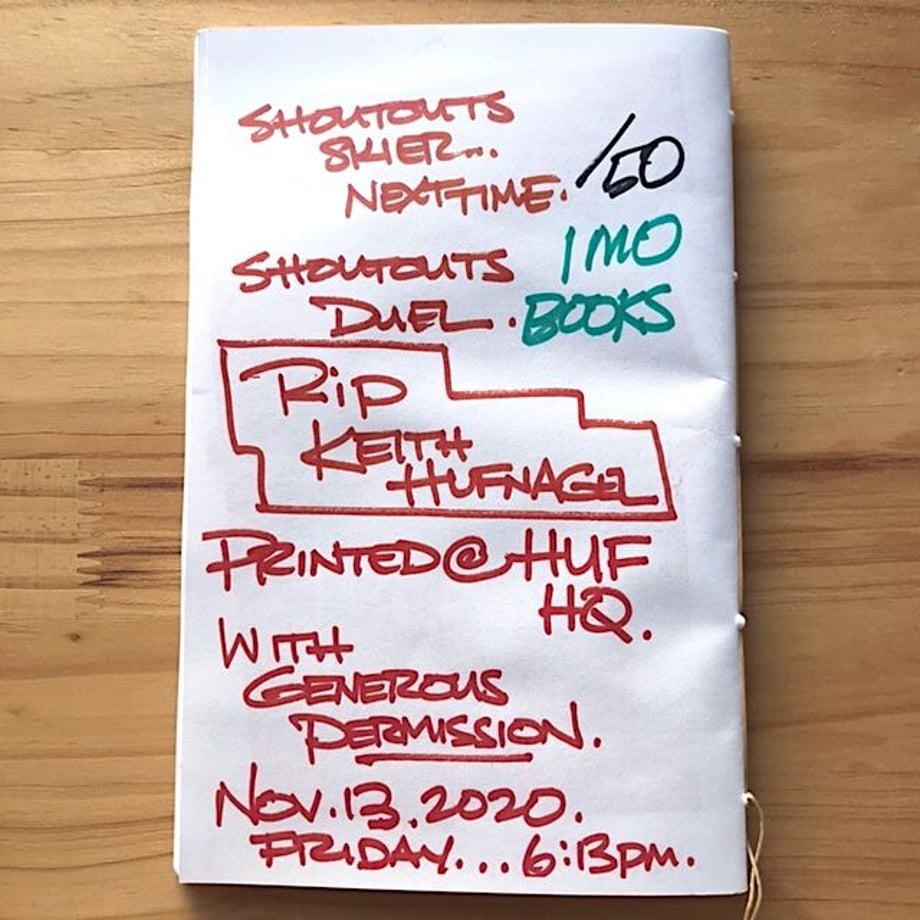 SHOUTOUTS
SKIER...
NEXT TIME.
/50
SHOUTOUTS
DUEL.
1 MO
BOOKS
RIP
KEITH
HUFNAGEL
PRINTED @ HUF
HQ.
WITH
GENEROUS
PERMISSION.
NOV. 13. 2020.
FRIDAY... 6:13pm.